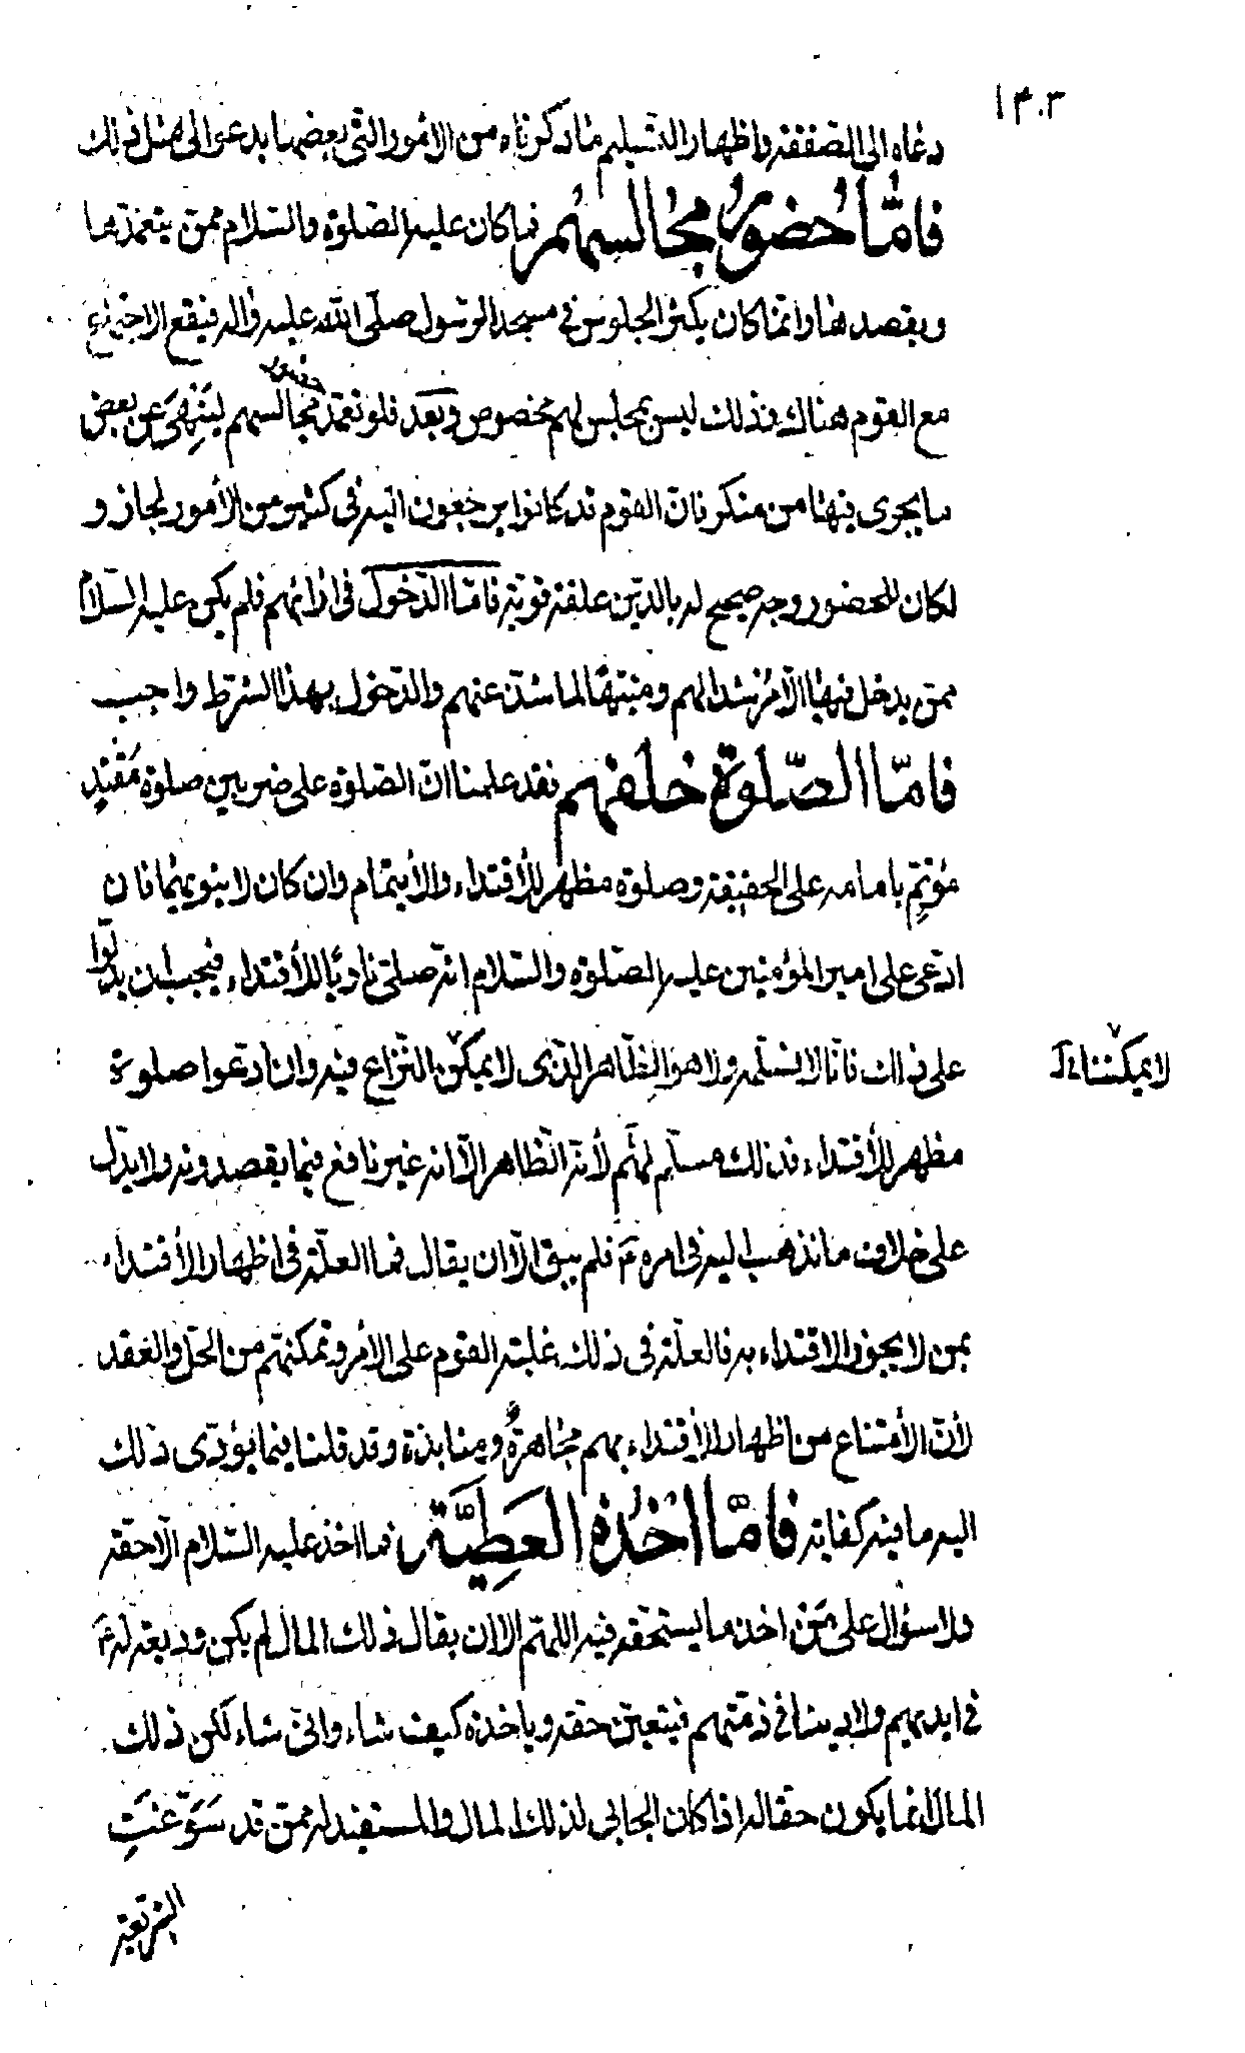 ١٣٠٣
دعاه الى الصفقة واظهار التسليم ما ذكرناه من الامور التي بعضها يدعوا الى مثل ذلك
فامّا حُضورُ مجالسهم فما كان عليه الصّلوة والسّلام ممّن يتعمّدها
ويقصدها وانّما كان يكثر الجلوس في مسجد الرّسول صلّى الله عليه واله فيقع الاجتماع
مع القوم هناك وذلك ليس بمجلس لهم مخصوص وبَعد فلو تعمّد حضور مجالسهم لينهى عن بعض
ما يجرى فيها من منكر فانّ القوم قد كانوا يرجعون اليه في كثير من الأمور لجاز و
لكان للحضور وجه صحيح له بالدّين علقة قويّة فامّا الدّخول في ارائهم فلم يكن عليه السّلام
ممّن يدخل فيها الّا مُرشدا لهم ومنبّها لما شذّ عنهم والدّخول بهذا الشّرط واجب
فامّا الصّلوة خلفهم فقد علمنا انّ الصّلوة على ضربين صلوة مقتدٍ
مؤتمّ بامامه على الحقيقة وصلوة مظهر للأقتداء والأيتمام وان كان لا ينويهما فان
ادّعى على امير المؤمنين عليه الصّلوة والسّلام انّه صلّى ناويًا للأقتداء فيجب ان يدلّوا
على ذلك فانّا لا نسلّمه ولا هو الظّاهر الّذى لا يمكن النّزاع فيه وان ادّعوا صلوة
لا يمكننا
مظهر للأقتداء فذلك مسلّم لهم لأنّه الظّاهر الّا انه غير نافع فيما يقصدونه ولا يدلّ
على خلاف ما نذهب اليه في امره ع فلم يبق الّا ان يقال فما العلّة في اظهار الأقتداء
بمن لا يجوز الاقتداء به فالعلّة في ذلك غلبة القوم على الامر وتمكّنهم من الحلّ والعقد
لأنّ الأمتناع من اظهار الأقتداء بهم مجاهرةٌ ومنابذة وقد قلنا فيما يؤدّى ذلك
اليه ما فيه كفاية فامّا اخذُه العَطِيَّة فما اخذ عليه السّلام الّا حقّه
ولا سؤال على مَن اخذ ما يستحقّه فيه اللهمّ الا ان يقال ذلك المال لم يكن وديعة له ع
في ايديهم ولا دينا في ذمّتهم فيتعيّن حقّه وياخذه كيف شاء وانّى شاء لكن ذلك
المال انما يكون حقا له اذا كان الجابى لذلك المال والمستفيد له ممّن قد سَوَّغت
الشّريعة